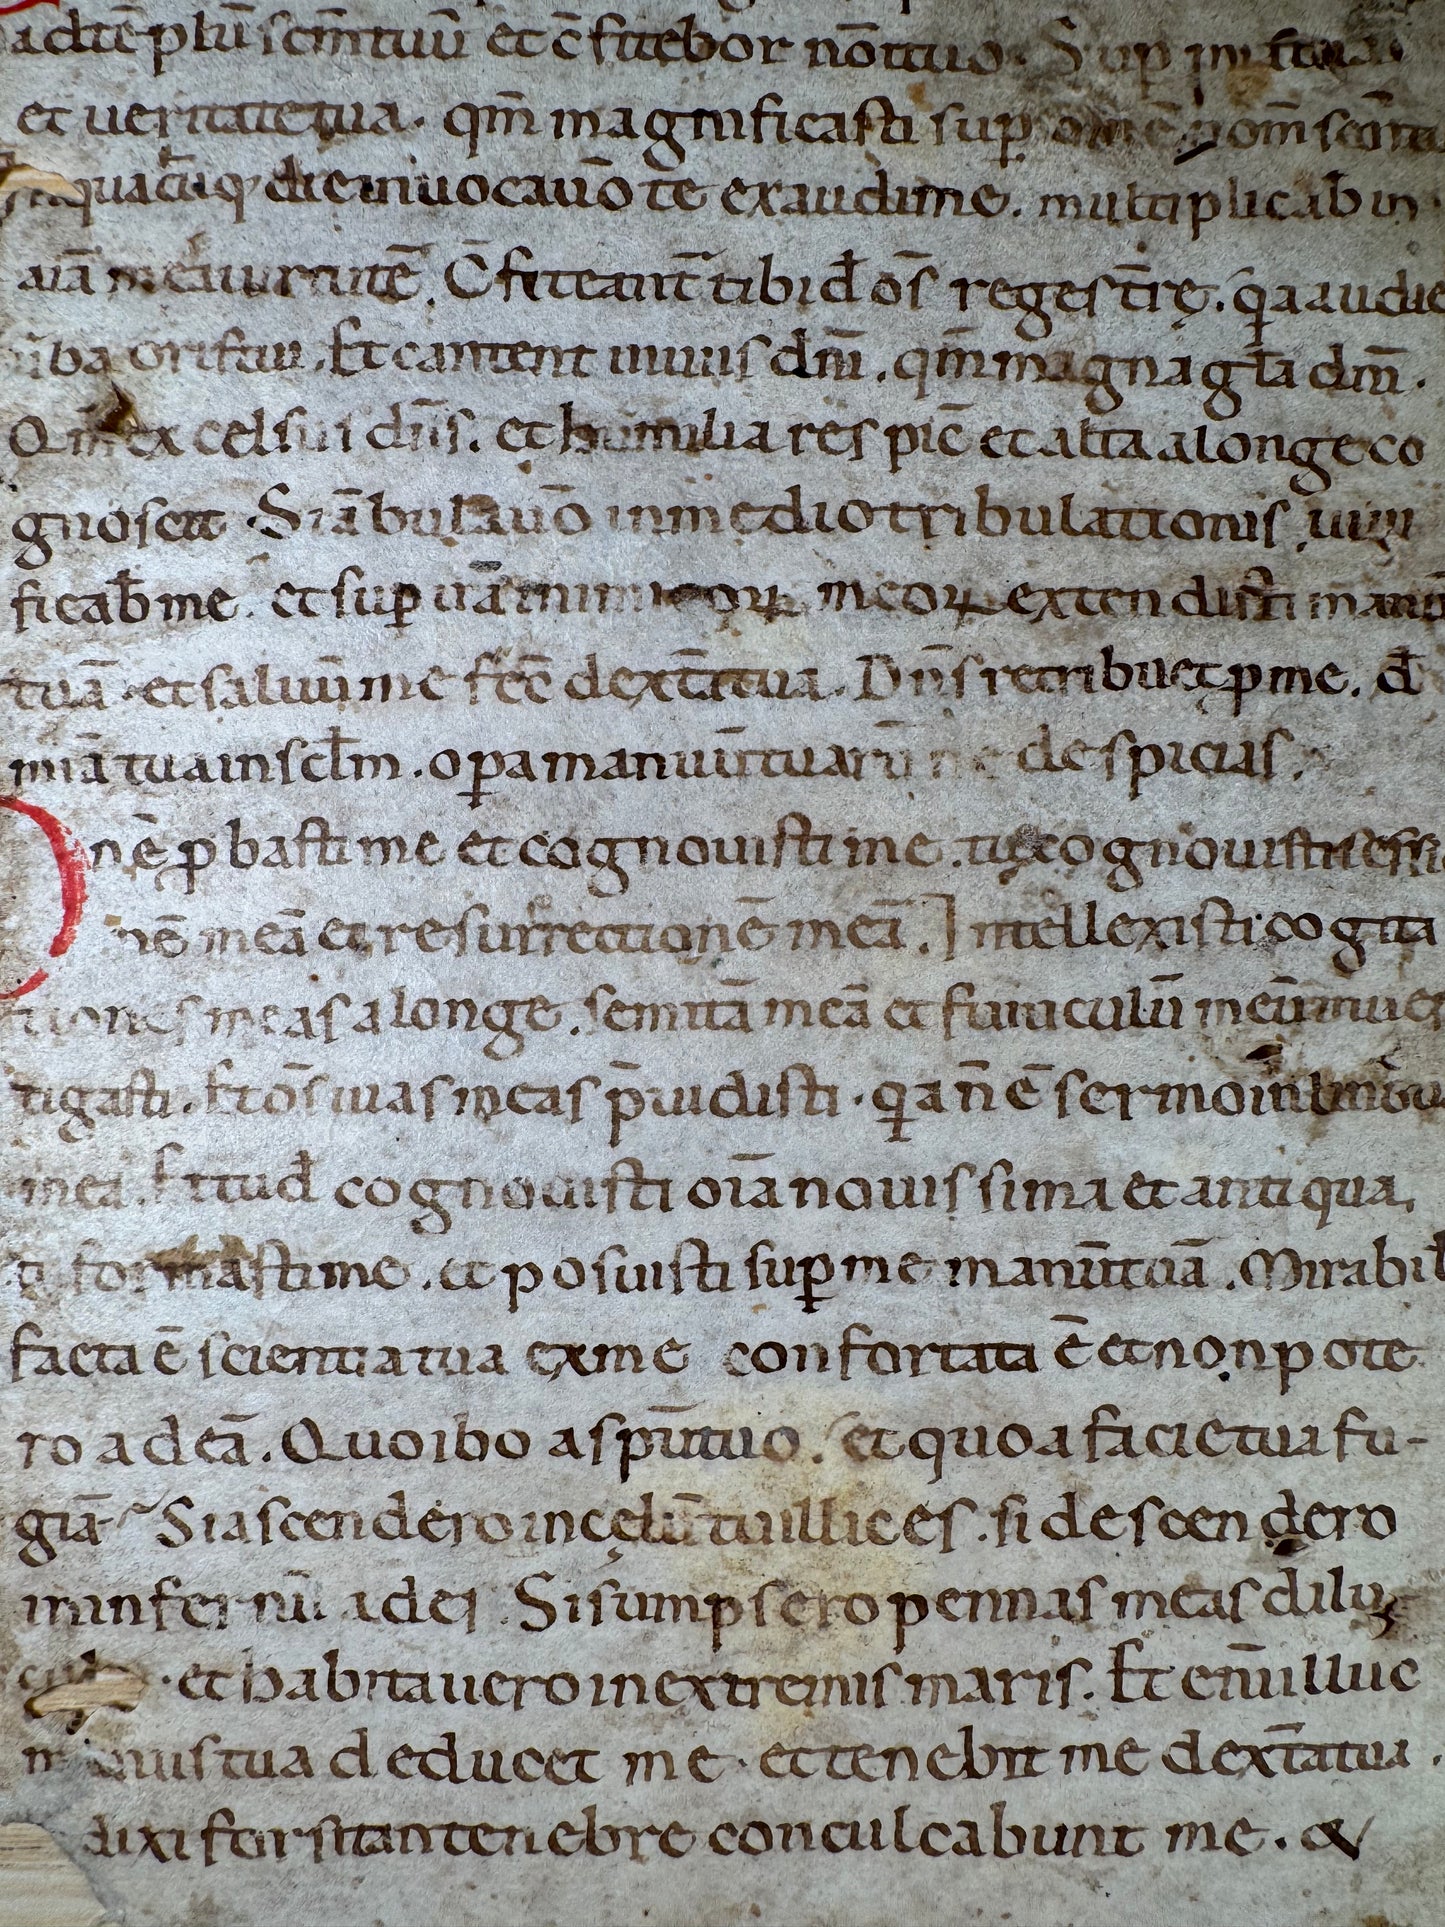 adtē plū scm̄ tuū et c̄fitebor nōi tuo. Sup
et ueritate tua. qm̄ magnificasti sup om̄e nom̄ scm̄
quacūq; die inuocauō te exaudi me. multiplicab in
aīa mea uirtutē. C̄fiteant̄ tibi dn̄e om̄s reges tr̄ę. qa audie
ūba oris tui. Et cantent in uiis dn̄i. qm̄ magna gl̄a dn̄i.
Qm̄ excelsus dn̄s. et humilia respic̄ et alta a longe co
gnoscit. Si ābulauō in medio tribulationis uiui
ficab me. et sup irā inimicoꝝ meoꝝ extendisti manū
tuā. et saluū me fec̄ dext̄a tua. Dn̄s retribuet ꝓ me. d
mīa tua in sclm̄. opa manuū tuarū ne despicias.
Dn̄e ꝓbasti me et cognouisti me. tu cognouisti sessi
onē meā et resurrectionē meā. Intellexisti cogita
tiones meas a longe. semitā meā et funiculū meū inues
tigasti. Et om̄s uias meas p̄uidisti. qa n̄ ē sermo in
mea. cognouisti oīa nouissima et antiqua,
tu formasti me. et posuisti sup me manū tuā. Mirabil
facta ē scientia tua ex me confortata ē et non pote
ro ad eā. Quo ibo a spū tuo. et quo a facie tua fu-
giā. Si ascendero in cęlū tu illic es. si descendero
in infernū ades. Si sumpsero pennas meas dilu
. et habitauero in extremis maris. Et enī illuc
manus tua deducet me. et tenebit me dext̄a tua.
dixi forsitan tenebre conculcabunt me. &